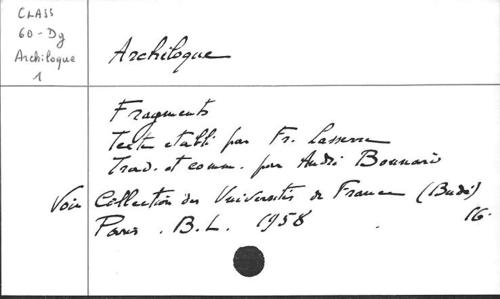 CLASS
60-Dg
Archiloque
1
Archiloque
Fragments
Texte etabli par Fr. Lasserre
Trad. et comm. par André Bonnard
Voir Collection des Universités de France (Budé)
Paris . B.L. 1958 . 16.